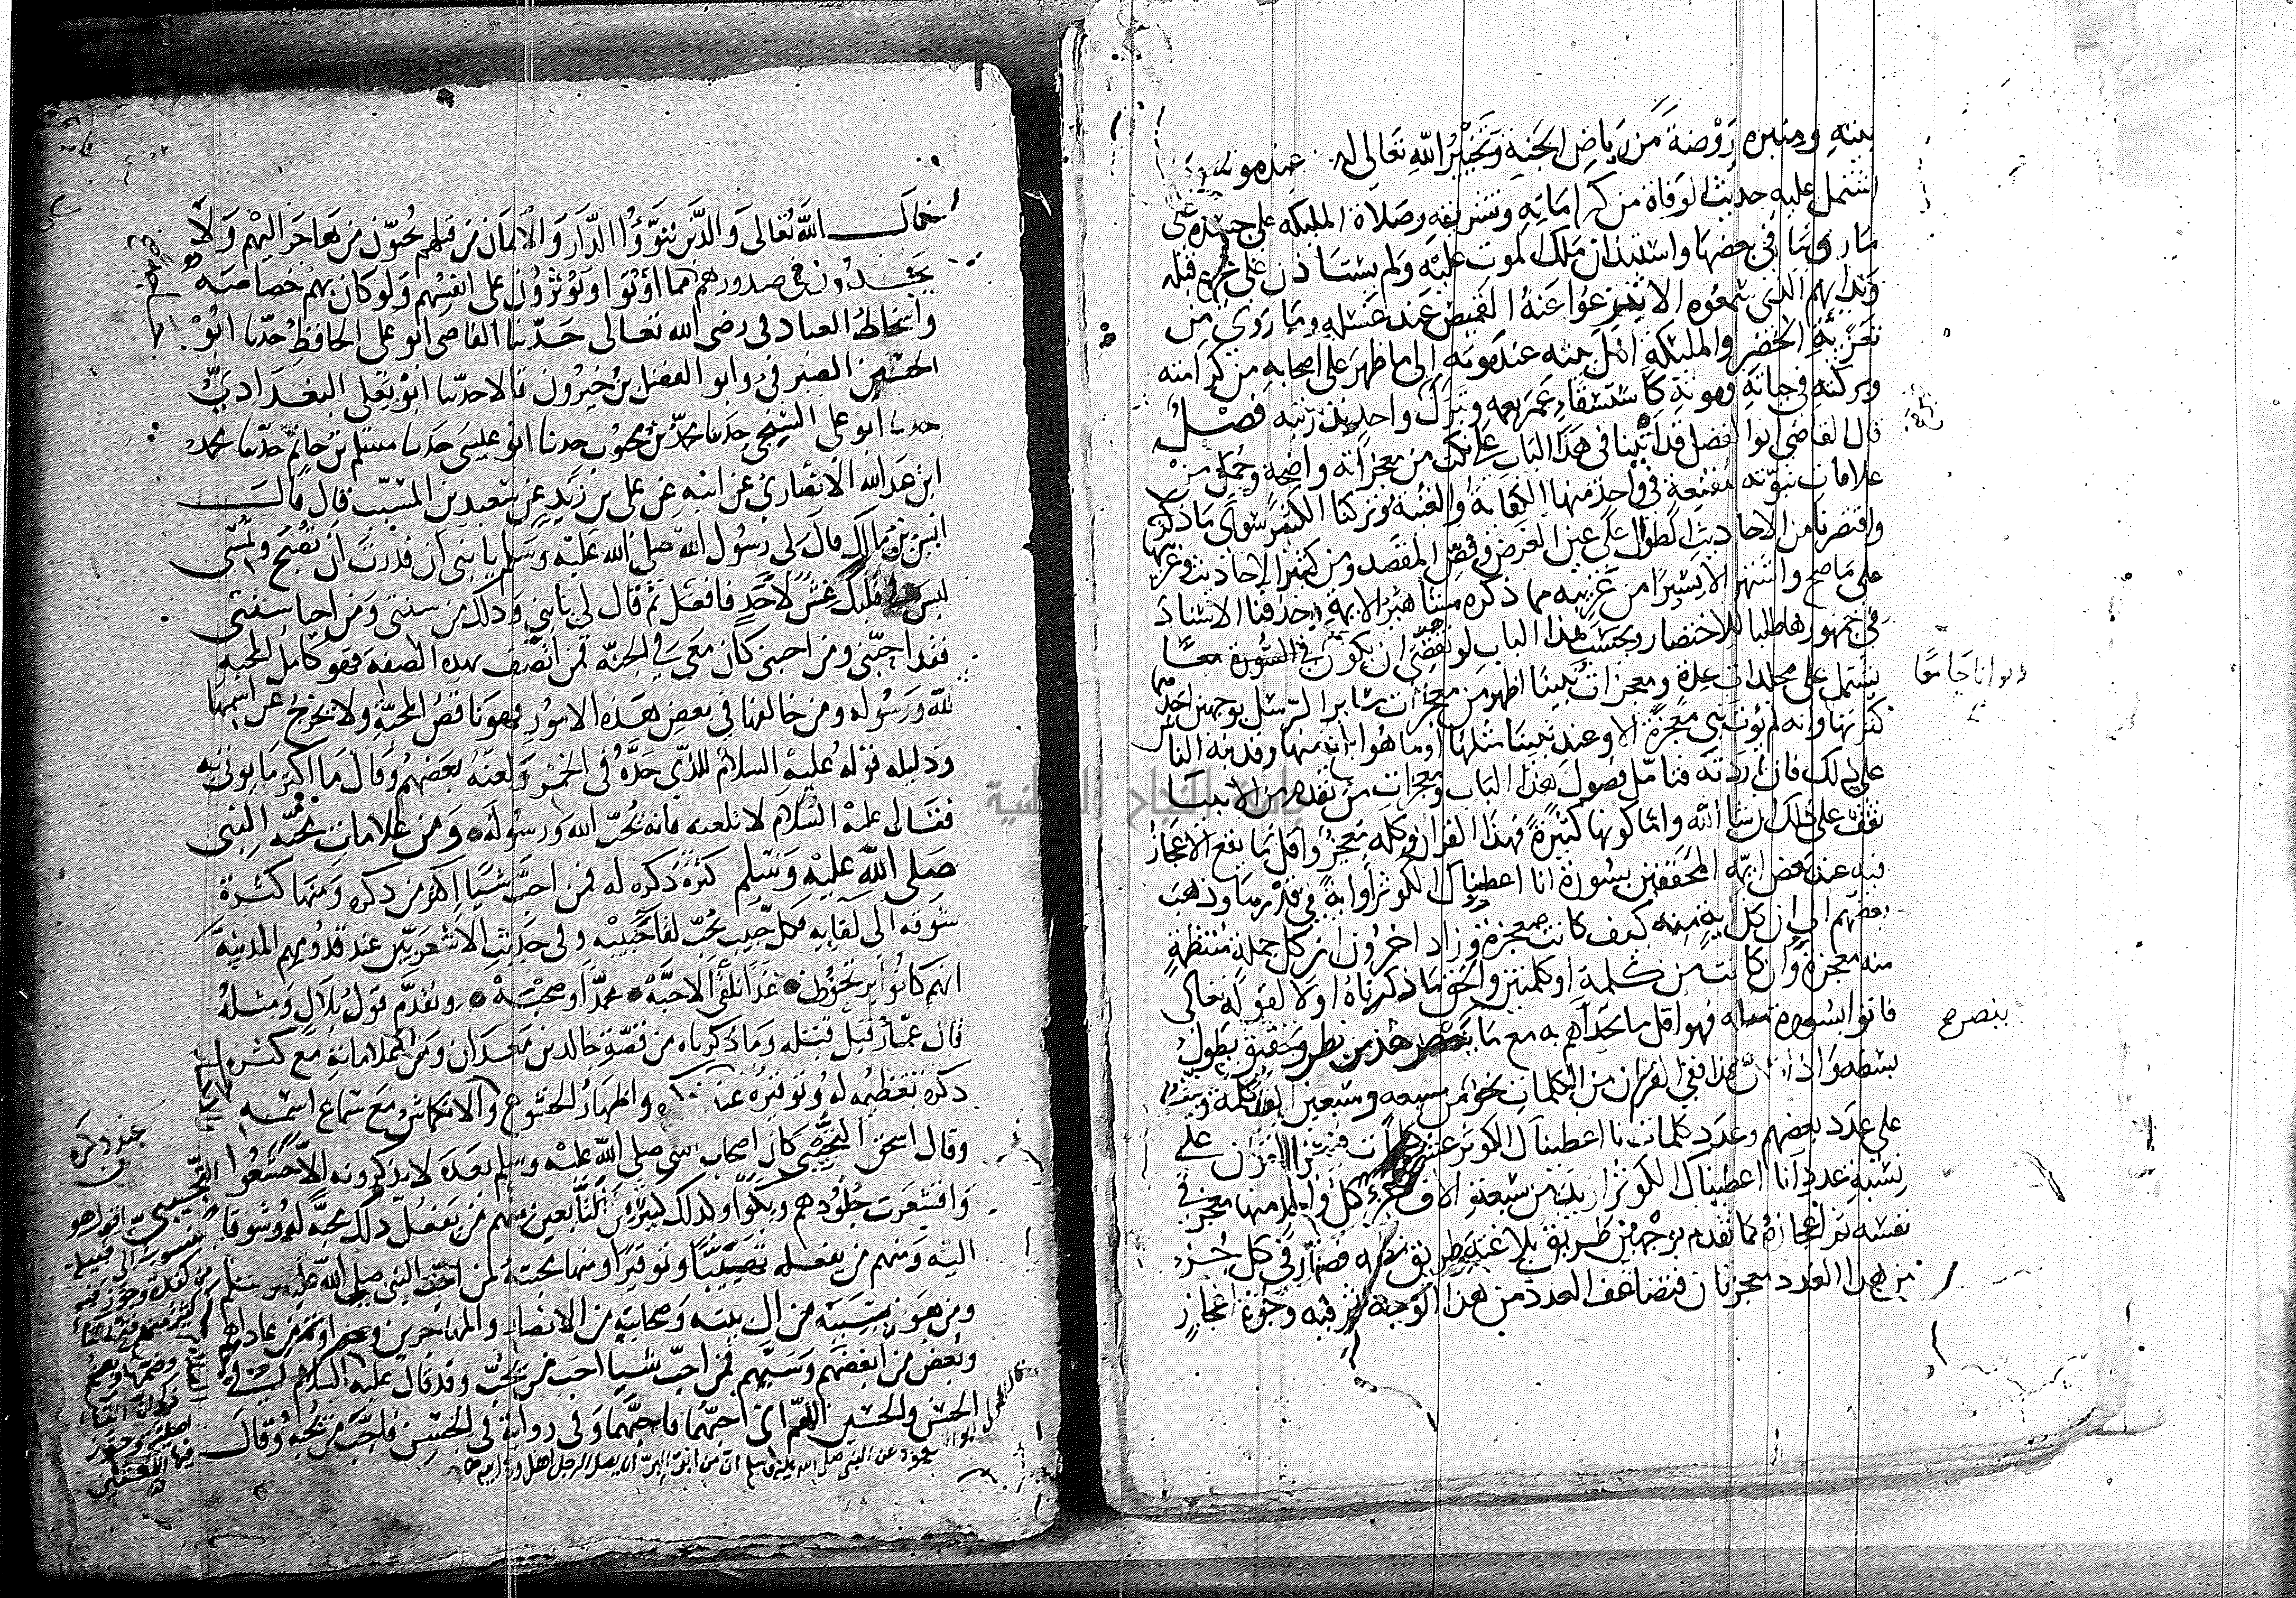 بيته ومنبره روضة من رياض الجنة وتخيير الله تعالى له عند موته وما
اشتمل عليه حديث الوفاة من كراماته وتشريفه وصلاة الملئكه على جسده على
ما رويناه في بعضها واستيذان ملك الموت عليه ولم يستاذن على غيره قبله
وندايهم الذي سمعوه الا تنزعوا عنه القميص عند غسله وما روي من
تعزية الخضر والمليكة اهل بيته عند موته الى ما ظهر على اصحابه من كرامته
وبركته في حياته وموته كاستسقاء عمر بعمه وتبرك واحد بذريته فصل
قال القاضي ابوا الفضل قد اتينا في هذا الباب على نكت من معجزاته واضحة وجمل من
علامات نبوته مقنعة في واحد منها الكفاية والغنية وتركنا الكثير سوى ما ذكرنا
واقتصرنا من الاحاديث الطوال على عين الغرض وفص المقصد ومن كثير الاحاديث وغريبها
على ما صح واشتهر الا يسيرا من غريبه مما ذكره مشاهير الايمة وحذفنا الاسناد
في جمهورها طلبا للاختصار وبحسب هذا الباب لو تقصي ان يكون
ديوانا جامعا
يشتمل على مجلدات عدة ومعجزات نبينا اظهر من معجزات ساير الرسل بوجهين احدهما
كثرتها وانه لم يؤت نبي معجزة الا وعند نبينا مثلها او ما هو ابلغ منها وقد نبه الناس
على ذلك فان اردته فتامل فصول هذا الباب ومعجزات من تقدم من الانبيا
تقف على ذلك ان شا الله واما كونها كثيرة فهذا القران وكله معجز واقل ما يقع الاعجاز
فيه عند بعض ايمة المحققين بسورة انا اعطيناك الكوثر او اية في قدرها وذهب
بعضهم الى ان كل اية منه كيف كانت معجزة وزاد اخرون ان كل جملة منتظمة
منه معجزة وان كانت من كلمة او كلمتين والحق ما ذكرناه اولا لقوله تعالى
فاتوا بسورة مثله فهو اقل ما تحداهم به مع ما ينصر هذا من نظر وتحقيق يطول
ينصر
بسطه واذا كان هذا ففي القران من الكلمات نحو من سبعه وسبعين الف كلمة ونيف
على عدد بعضهم وعدد كلمات انا اعطيناك الكوثر عشر كلمات فتجزا القران على
نسبة عدد انا اعطيناك الكوثر ازيد من سبعة الاف جزء كل واحد منها معجز في
نفسه ثم اعجازه كما تقدم بوجهين طريق بلاغته وطريق نظمه فصار في كل جزء
من هذا العدد معجزتان فتضاعف العدد من هذا الوجه ثم فيه وجوه اعجاز
الله تعالى والذين تبوؤا الدار والايمان من قبلهم يحبون من هاجر اليهم ولا
يجدون في صدورهم مما اوتوا ويؤثرون على انفسهم ولو كان بهم خصاصة
واسخاط العباد في رضى الله تعالى حدثنا القاضي ابو على الحافظ حدثنا ابو
الحسين الصيرفي وابو الفضل بن خيرون قالا حدثنا ابو يعلى البغدادي
حدثنا ابو على السنجي حدثنا محمد بن محبوب حدثنا ابو عيسى حدثنا مسلم بن حاتم حدثنا محمد
ابن عبد الله الانصاري عن ابيه عن على بن زيد عن سعيد بن المسيب قال قال
انس بن مالك قال لي رسول الله صلى الله عليه وسلم يا بني ان قدرت ان تصبح وتمسى
ليس في قلبك غش لاحد فافعل ثم قال لي يا بني وذلك من سنتى ومن احيا سنتي
فقد احبني ومن احبني كان معي في الجنة فمن اتصف بهذه الصفة فهو كامل المحبه
لله ورسوله ومن خالفها في بعض هذه الامور فهو ناقص المحبة ولا يخرج عن اسمها
ودليله قوله عليه السلام للذي حده في الخمر ولعنه بعضهم وقال ما اكثر ما يوتى به
فقال عليه السلام لا تلعنه فانه يحب الله ورسوله ومن علامات محبة النبي
صلى الله عليه وسلم كثرة ذكره له فمن احب شيا اكثر من ذكره ومنها كثرة
شوقه الى لقايه فكل حبيب يحب لقا حبيبه وفي حديث الاشعريين عند قدومهم المدينة
انهم كانوا يرتجزون غدا نلقى الاحبه محمدا وصحبه وتقدم قول بلال ومثله
قال عمار قبل قتله وما ذكرناه من قصة خالد بن معدان ومن علاماته مع كثره
ذكره تعظيمه له وتوقيره عند ذكره واظهار الخشوع والانكاش مع سماع اسمه
عند ذكره
وقال اسحق التجيبي كان اصحاب النبي صلى الله عليه وسلم بعده لا يذكرونه الا خشعوا
واقشعرت جلودهم وبكوا وكذلك كثير من التابعين منهم من يفعل ذلك محبة له وشوقا
اليه ومنهم من يفعله تهيبا وتوقيرا ومنها محبته لمن احب النبي صلى الله عليه وسلم
ومن هو بسببه من ال بيته وصحابته من الانصار والمهاجرين وعداوة من عاداهم
وبغض من ابغضهم وسبهم فمن احب شيا احب من يحب وقد قال عليه السلام في
الحسن والحسين اللهم اني احبهما فاحبهما وفي رواية في الحسن فاحب من يحبه وقال